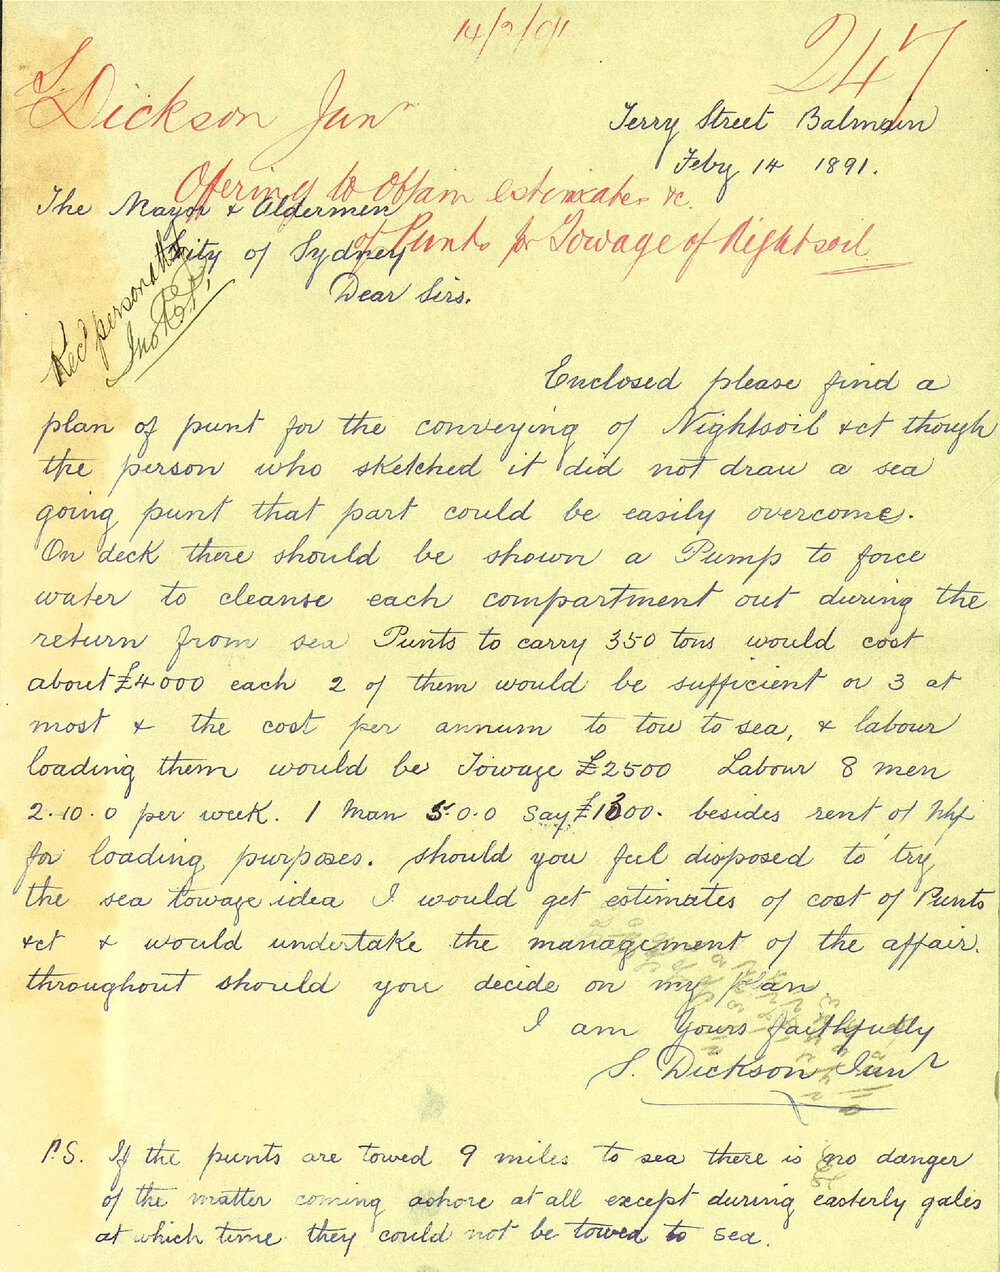 14/2/91
247
S. Dickson Junr
Terry Street Balmain
Feby 14 1891.
Offering to Obtain estimates &c.
of Punts for Towage of Nightsoil
The Mayor & Aldermen
City of Sydney
Recd personally
Dear Sirs.
Enclosed please find a
plan of punt for the conveying of Nightsoil &ct though
the person who sketched it did not draw a sea
going punt that part could be easily overcome.
On deck there should be shown a Pump to force
water to cleanse each compartment out during the
return from sea Punts to carry 350 tons would cost
about £4000 each 2 of them would be sufficient or 3 at
most & the cost per annum to tow to sea, & labour
loading them would be Towage £2500 Labour 8 men
2.10.0 per week. 1 Man 5.0.0 say £1300. besides rent of
for loading purposes. should you feel disposed to try
the sea towage idea I would get estimates of cost of Punts
&ct & would undertake the management of the affair.
throughout should you decide on my plan
I am Yours faithfully
S. Dickson Junr
P.S. If the punts are towed 9 miles to sea there is no danger
of the matter coming ashore at all except during easterly gales
at which time they could not be towed to sea.